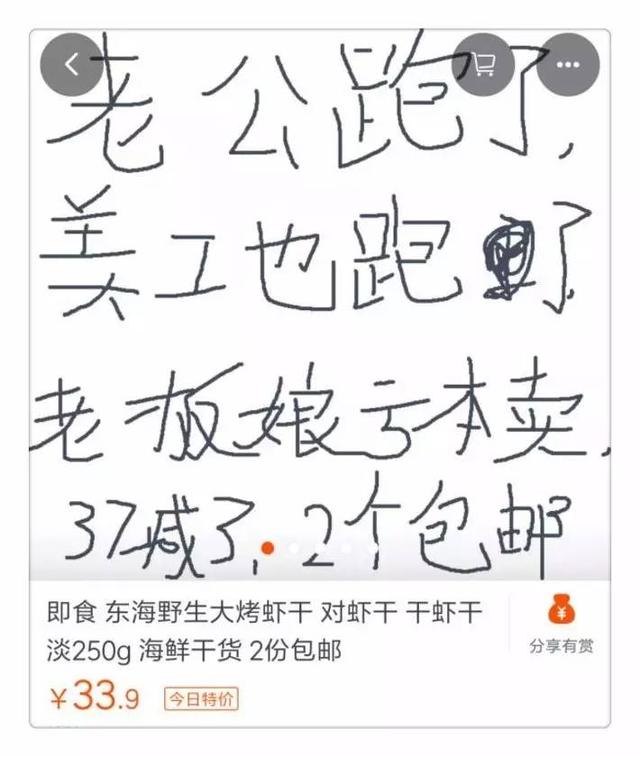 老公跑了,
美工也跑了
老板娘亏本卖,
37减了,2个包邮
即食 东海野生大烤虾干 对虾干 干虾干
淡250g 海鲜干货 2份包邮
分享有赏
¥33.9 今日特价